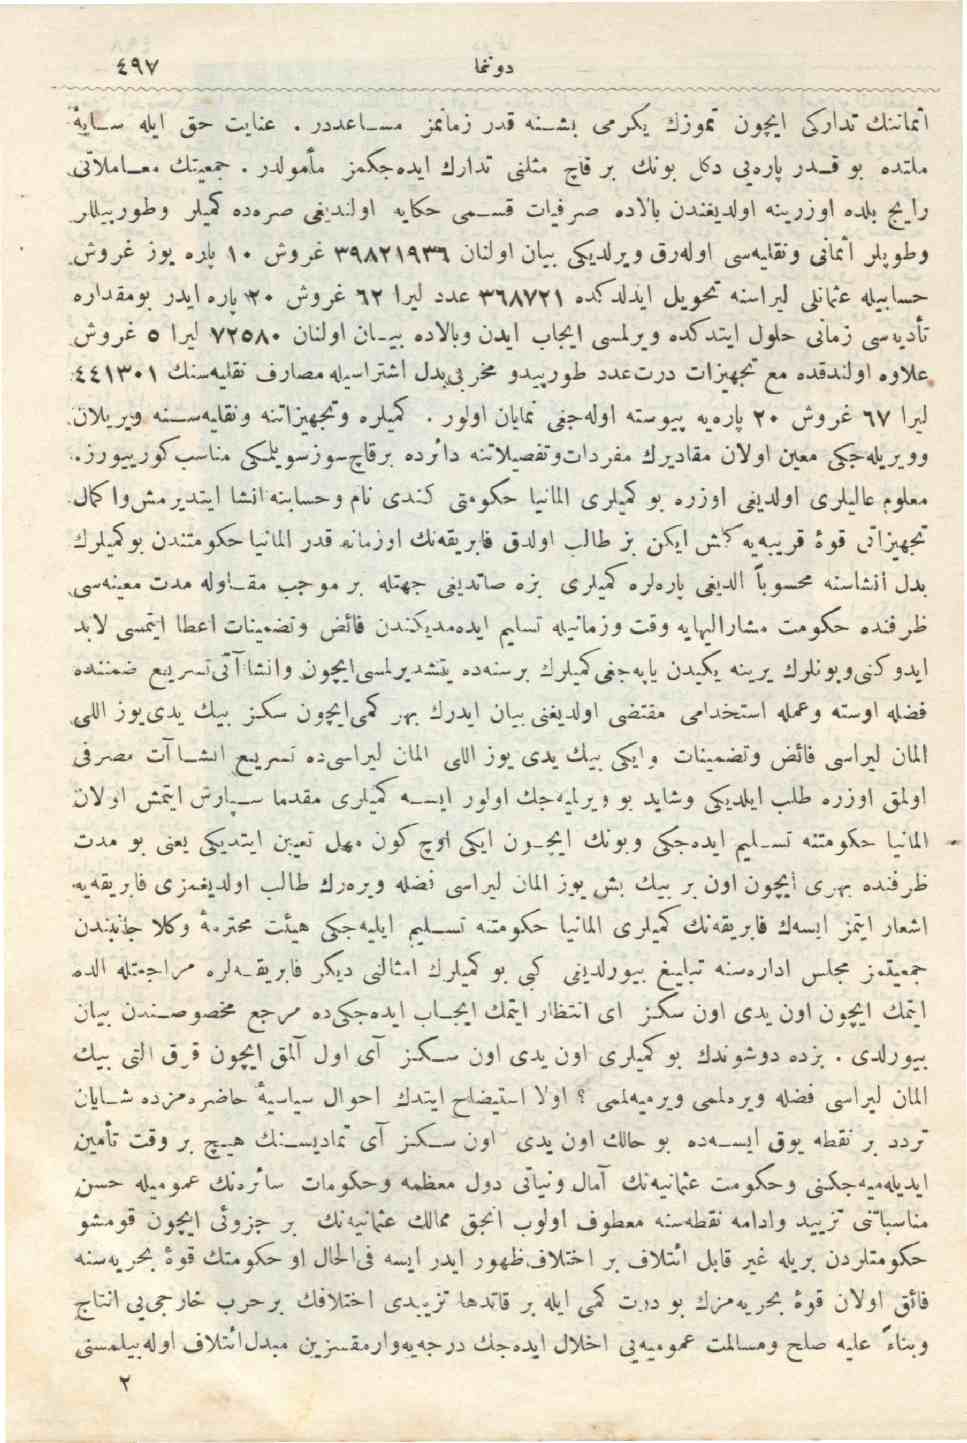 دوننما ٤٩٧
اثماننك تداركى ايچون تموزك يكرمى بشنه قدر زمانمز مساعددر . عنايت حق ايله سايۀ
ملتده بو قدر پاره‌يى دكل بونك بر قاچ مثلنى تدارك ايده‌جكمز مأمولدر . جمعيتك معاملاتى
رايج بلده اوزرينه اولديغندن بالاده صرفيات قسمى حكايه اولنديغى صره‌ده كميلر وطورپيللر
وطوپلر اثمانى ونقليه‌سى اوله‌رق ويرلديكى بيان اولنان ٣٩٨٢١٩٣٦ غروش ١٠ پاره يوز غروش
حسابيله عثمانلى ليراسنه تحويل ايدلدكده ٣٦٨٧٢١ عدد ليرا ٦٢ غروش ٢٠ پاره ايدر بومقداره
تأديه‌سى زمانى حلول ايتدكده ويرلمسى ايجاب ايدن وبالاده بيان اولنان ٧٢٥٨٠ ليرا ٥ غروش
علاوه اولندقده مع تجهيزات درت عدد طورپيدو مخربى بدل اشتراسيله مصارف نقليه‌سنك ٤٤١٣٠١
ليرا ٦٧ غروش ٢٠ پاره‌يه پيوسته اوله‌جغى نمايان اولور . كميلره وتجهيزاتنه ونقليه‌سنه ويريلان
وويريله‌جكى معين اولان مقاديرك مفردات وتفصيلاتنه دائرده برقاچ سوز سويلمكى مناسب كورييورز.
معلوم عاليلرى اولديغى اوزره بو كميلرى المانيا حكومتى كندى نام وحسابنه انشا ايتديرمش واكمال
تجهيزاتى قوۀ قريبه‌يه كلمش ايكن بز طالب اولدق فابريقه‌نك اوزمانه قدر المانيا حكومتندن بوكميلرك
بدل انشاسنه محسوباً الديغى پاره‌لره كميلرى بزه صاتديغى جهتله بر موجب مقاوله مدت معينه‌سى
ظرفنده حكومت مشاراليهايه وقت وزمانيله تسليم ايده‌مديكندن فائض وتضمينات اعطا ايتمسى لابد
ايدوكنى وبونلرك يرينه يكيدن ياپه‌جغى كميلرك برسنه‌ده يتشديرلمسى ايچون وانشاآتى تسريع ضمننده
فضله اوسته وعمله استخدامى مقتضى اولديغنى بيان ايدرك بهر كمى ايچون سكز بيك يدى يوز اللى
المان ليراسى فائض وتضمينات وايكى بيك يدى يوز اللى المان ليراسى ده تسريع انشاآت مصرفى
اولمق اوزره طلب ايلديكى وشايد بو ويرلميه‌جك اولور ايسه كميلرى مقدما سپارش ايتمش اولان
المانيا حكومتنه تسليم ايده‌جكى وبونك ايچون ايكى اوچ كون مهل تعيين ايتديكى يعنى بو مدت
ظرفنده بهرى ايچون اون بر بيك بش يوز المان ليراسى فضله ويره‌رك طالب اولديغمزى فابريقه‌يه
اشعار ايتمز ايسه‌ك فابريقه‌نك كميلرى المانيا حكومتنه تسليم ايليه‌جكى هيئت محترمۀ وكلا جانبندن
جمعيتمز مجلس اداره‌سنه تبليغ بيورلديغى كبى بو كميلرك امثالنى ديكر فابريقه‌لره مراجعتله الده
ايتمك ايچون اون يدى اون سكز اى انتظار ايتمك ايجاب ايده‌جكى ده مرجع مخصوصندن بيان
بيورلدى . بزده دوشوندك بو كميلرى اون يدى اون سكز آى اول آلمق ايچون قرق التى بيك
المان ليراسى فضله ويره‌لمى ويرميه‌لمى ؟ اولا استيضاح ايتدك احوال سياسيۀ حاضره‌مزده شايان
تردد بر نقطه يوق ايسه‌ده بو حالك اون يدى اون سكز آى تماديسنك هيچ بر وقت تأمين
ايديله‌ميه‌جكنى وحكومت عثمانيه‌نك آمال ونياتى دول معظمه وحكومات سائره‌نك عموميله حسن
مناسباتنى تزييد وادامه نقطه‌سنه معطوف اولوب انجق ممالك عثمانيه‌نك بر جزوئى ايچون قومشو
حكومتلردن بريله غير قابل ائتلاف بر اختلاف ظهور ايدر ايسه فى‌الحال او حكومتك قوۀ بحريه‌سنه
فائق اولان قوۀ بحريه‌مزك بو درت كمى ايله بر قاتدها تزييدى اختلافك بر حرب خارجى‌يى انتاج
وبناءً عليه صلح ومسالمت عموميه‌يى اخلال ايده‌جك درجه‌يه وارمقسزين مبدل ائتلاف اوله‌بيلمسنى
٢